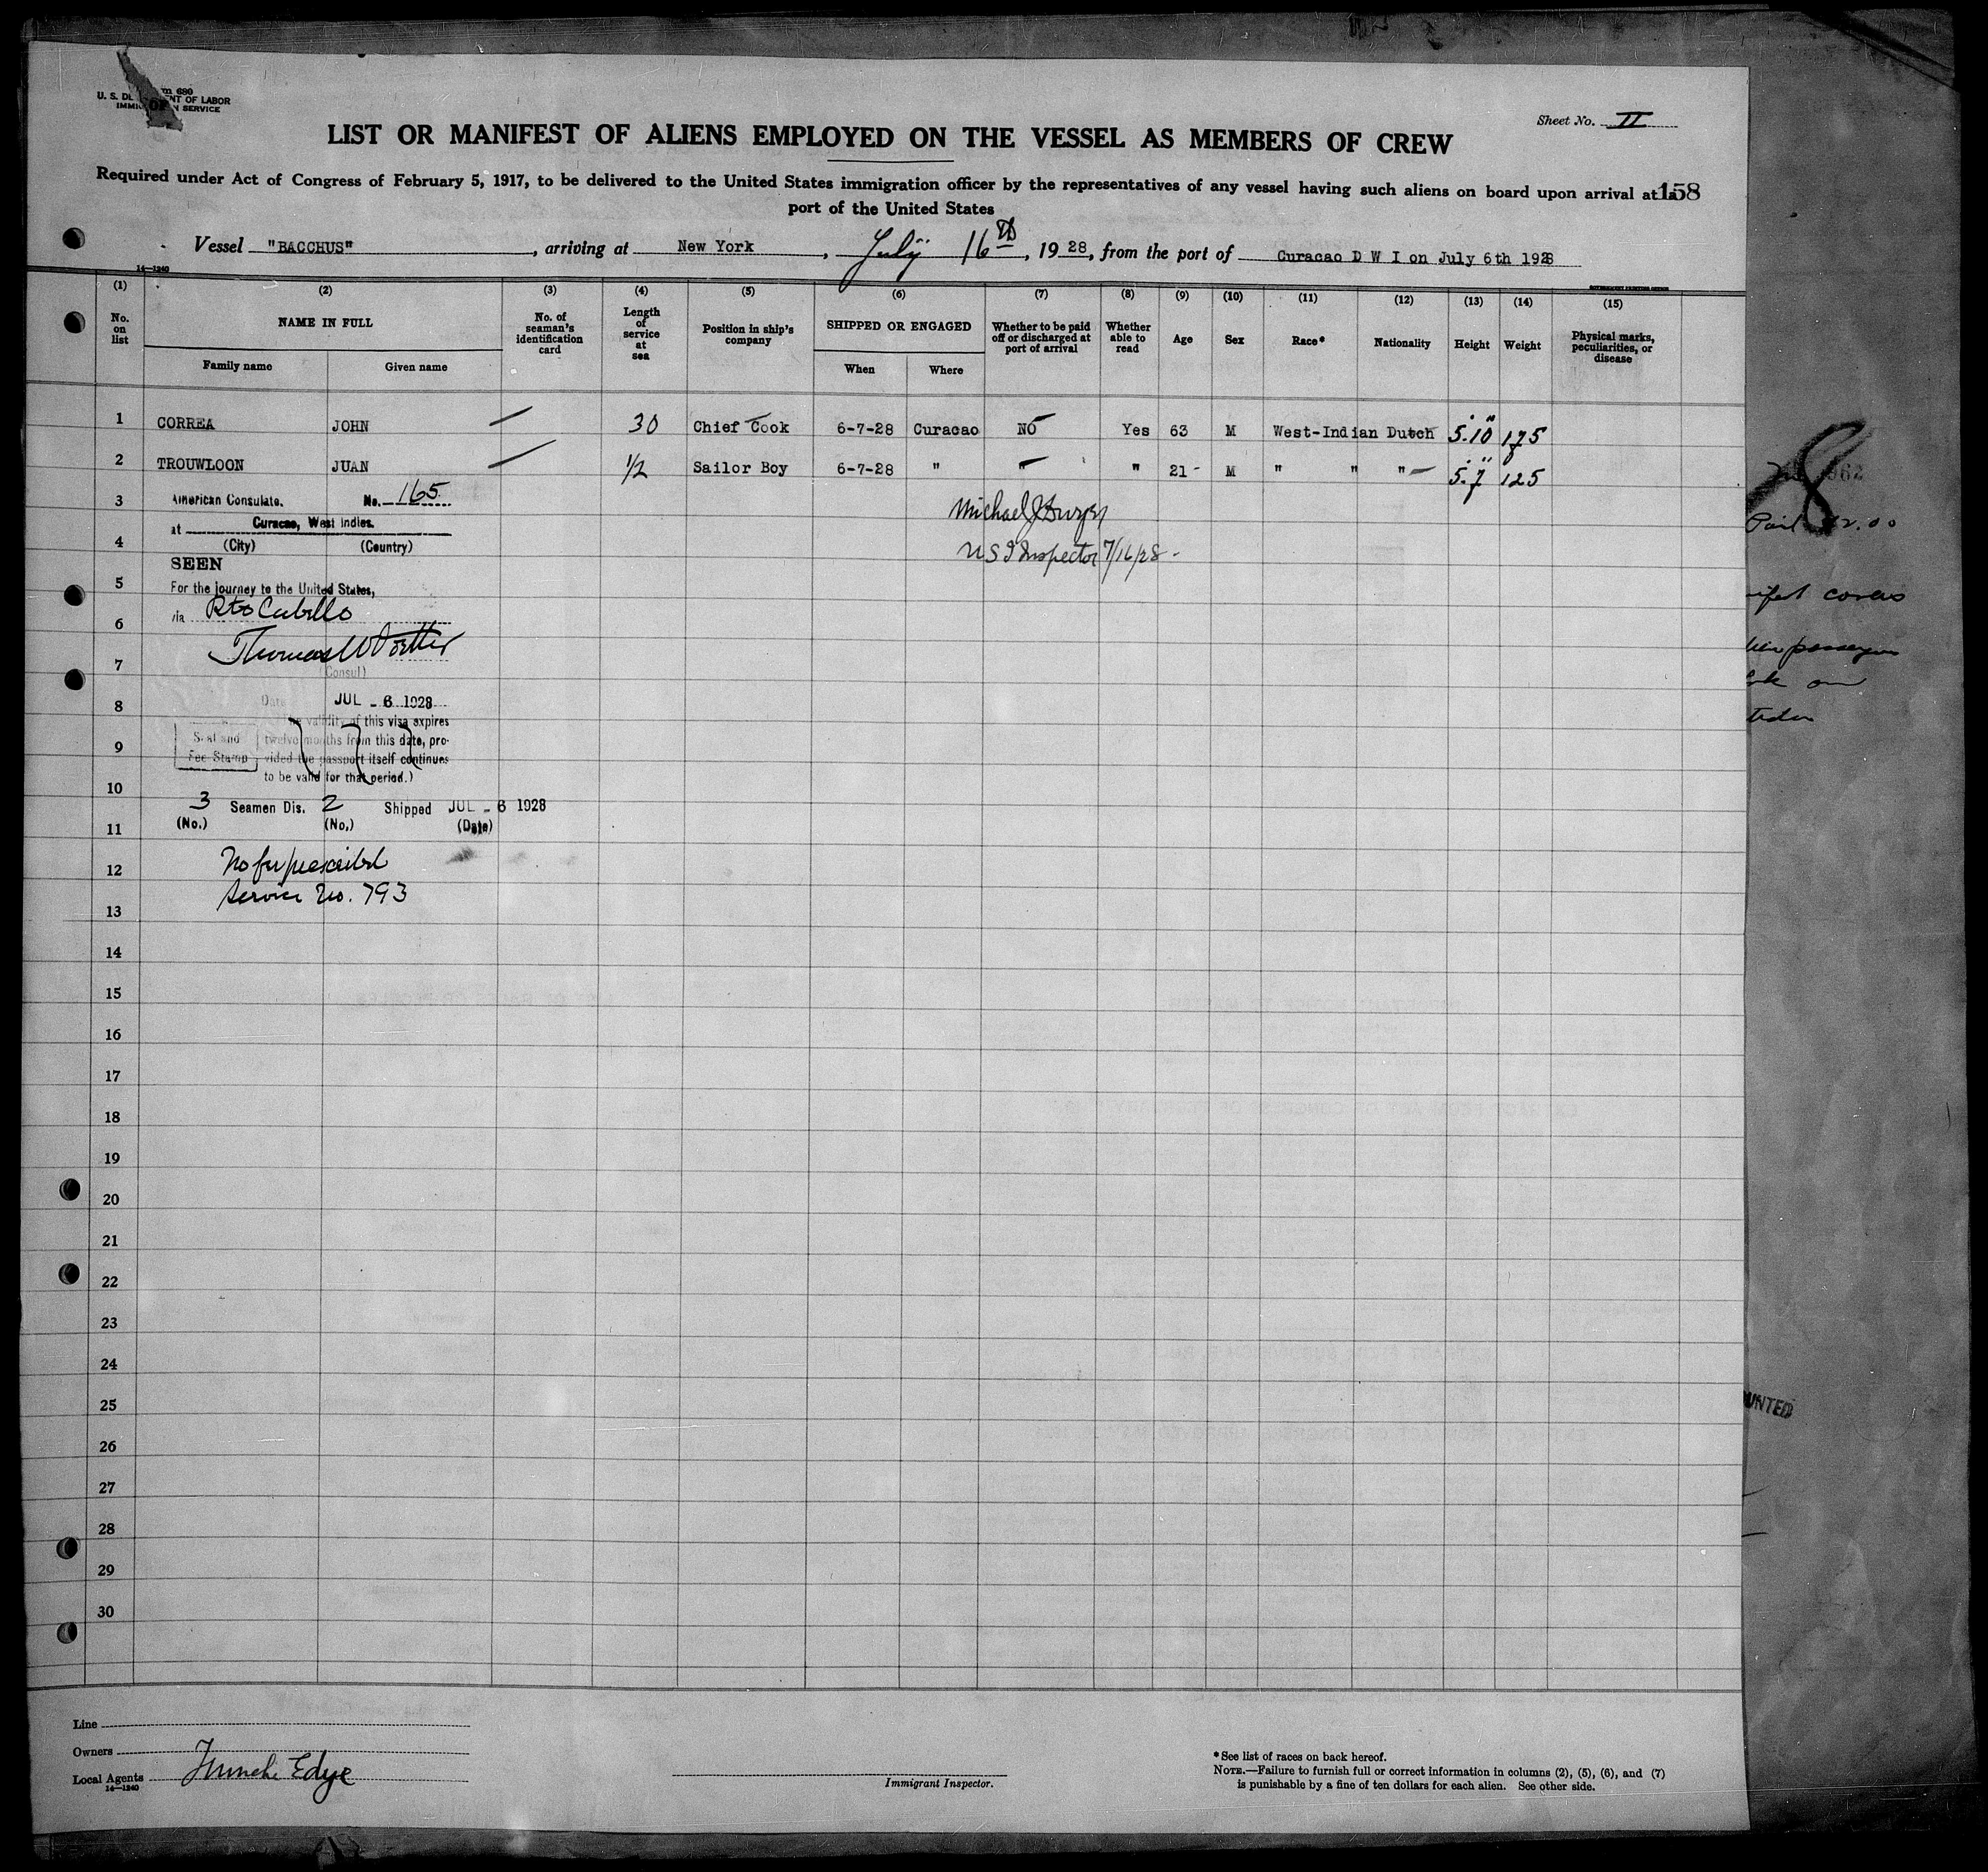 U. S. DE NT OF LABOR
IMMI N SERVICE
Sheet No. II
LIST OR MANIFEST OF ALIENS EMPLOYED ON THE VESSEL AS MEMBERS OF CREW
Required under Act of Congress of February 5, 1917, to be delivered to the United States immigration officer by the representatives of any vessel having such aliens on board upon arrival at a 158
port of the United States
Vessel "BACCHUS", arriving at New York, July 16th, 1928, from the port of Curacao D W I on July 6th 1928
14—1240
(1) (2) (3) (4) (5) (6) (7) (8) (9) (10) (11) (12) (13) (14) (15)
No. on list
NAME IN FULL
Family name Given name
No. of seaman's identification card
Length of service at sea
Position in ship's company
SHIPPED OR ENGAGED
When Where
Whether to be paid off or discharged at port of arrival
Whether able to read
Age
Sex
Race*
Nationality
Height
Weight
Physical marks, peculiarities, or disease
1 CORREA JOHN — 30 Chief Cook 6-7-28 Curacao NO Yes 63 M West-Indian Dutch 5.10 175
2 TROUWLOON JUAN — 1/2 Sailor Boy 6-7-28 " " " 21 - M " " " 5.7 125
3
4
5
6
7
8
9
10
11
12
13
14
15
16
17
18
19
20
21
22
23
24
25
26
27
28
29
30
American Consulate. No. 165
at Curacao, West Indies.
(City) (Country)
SEEN
For the journey to the United States,
via Pto Cabello
(Consul)
Date JUL - 6 1928
The validity of this visa expires
twelve months from this date, pro-
vided the passport itself continues
to be valid for that period.)
Seal and
Fee Stamp
3 Seamen Dis. 2 Shipped JUL - 6 1928
(No.) (No.) (Date)
No fee prescribed
Service No. 793
Michael J
U S I Inspector 7/16/28 -
Line
Owners
Local Agents Funch Edye
14—1240
Immigrant Inspector.
*See list of races on back hereof.
NOTE.—Failure to furnish full or correct information in columns (2), (5), (6), and (7)
is punishable by a fine of ten dollars for each alien. See other side.
Paid $2.00
covers
passengers
on
UNTED